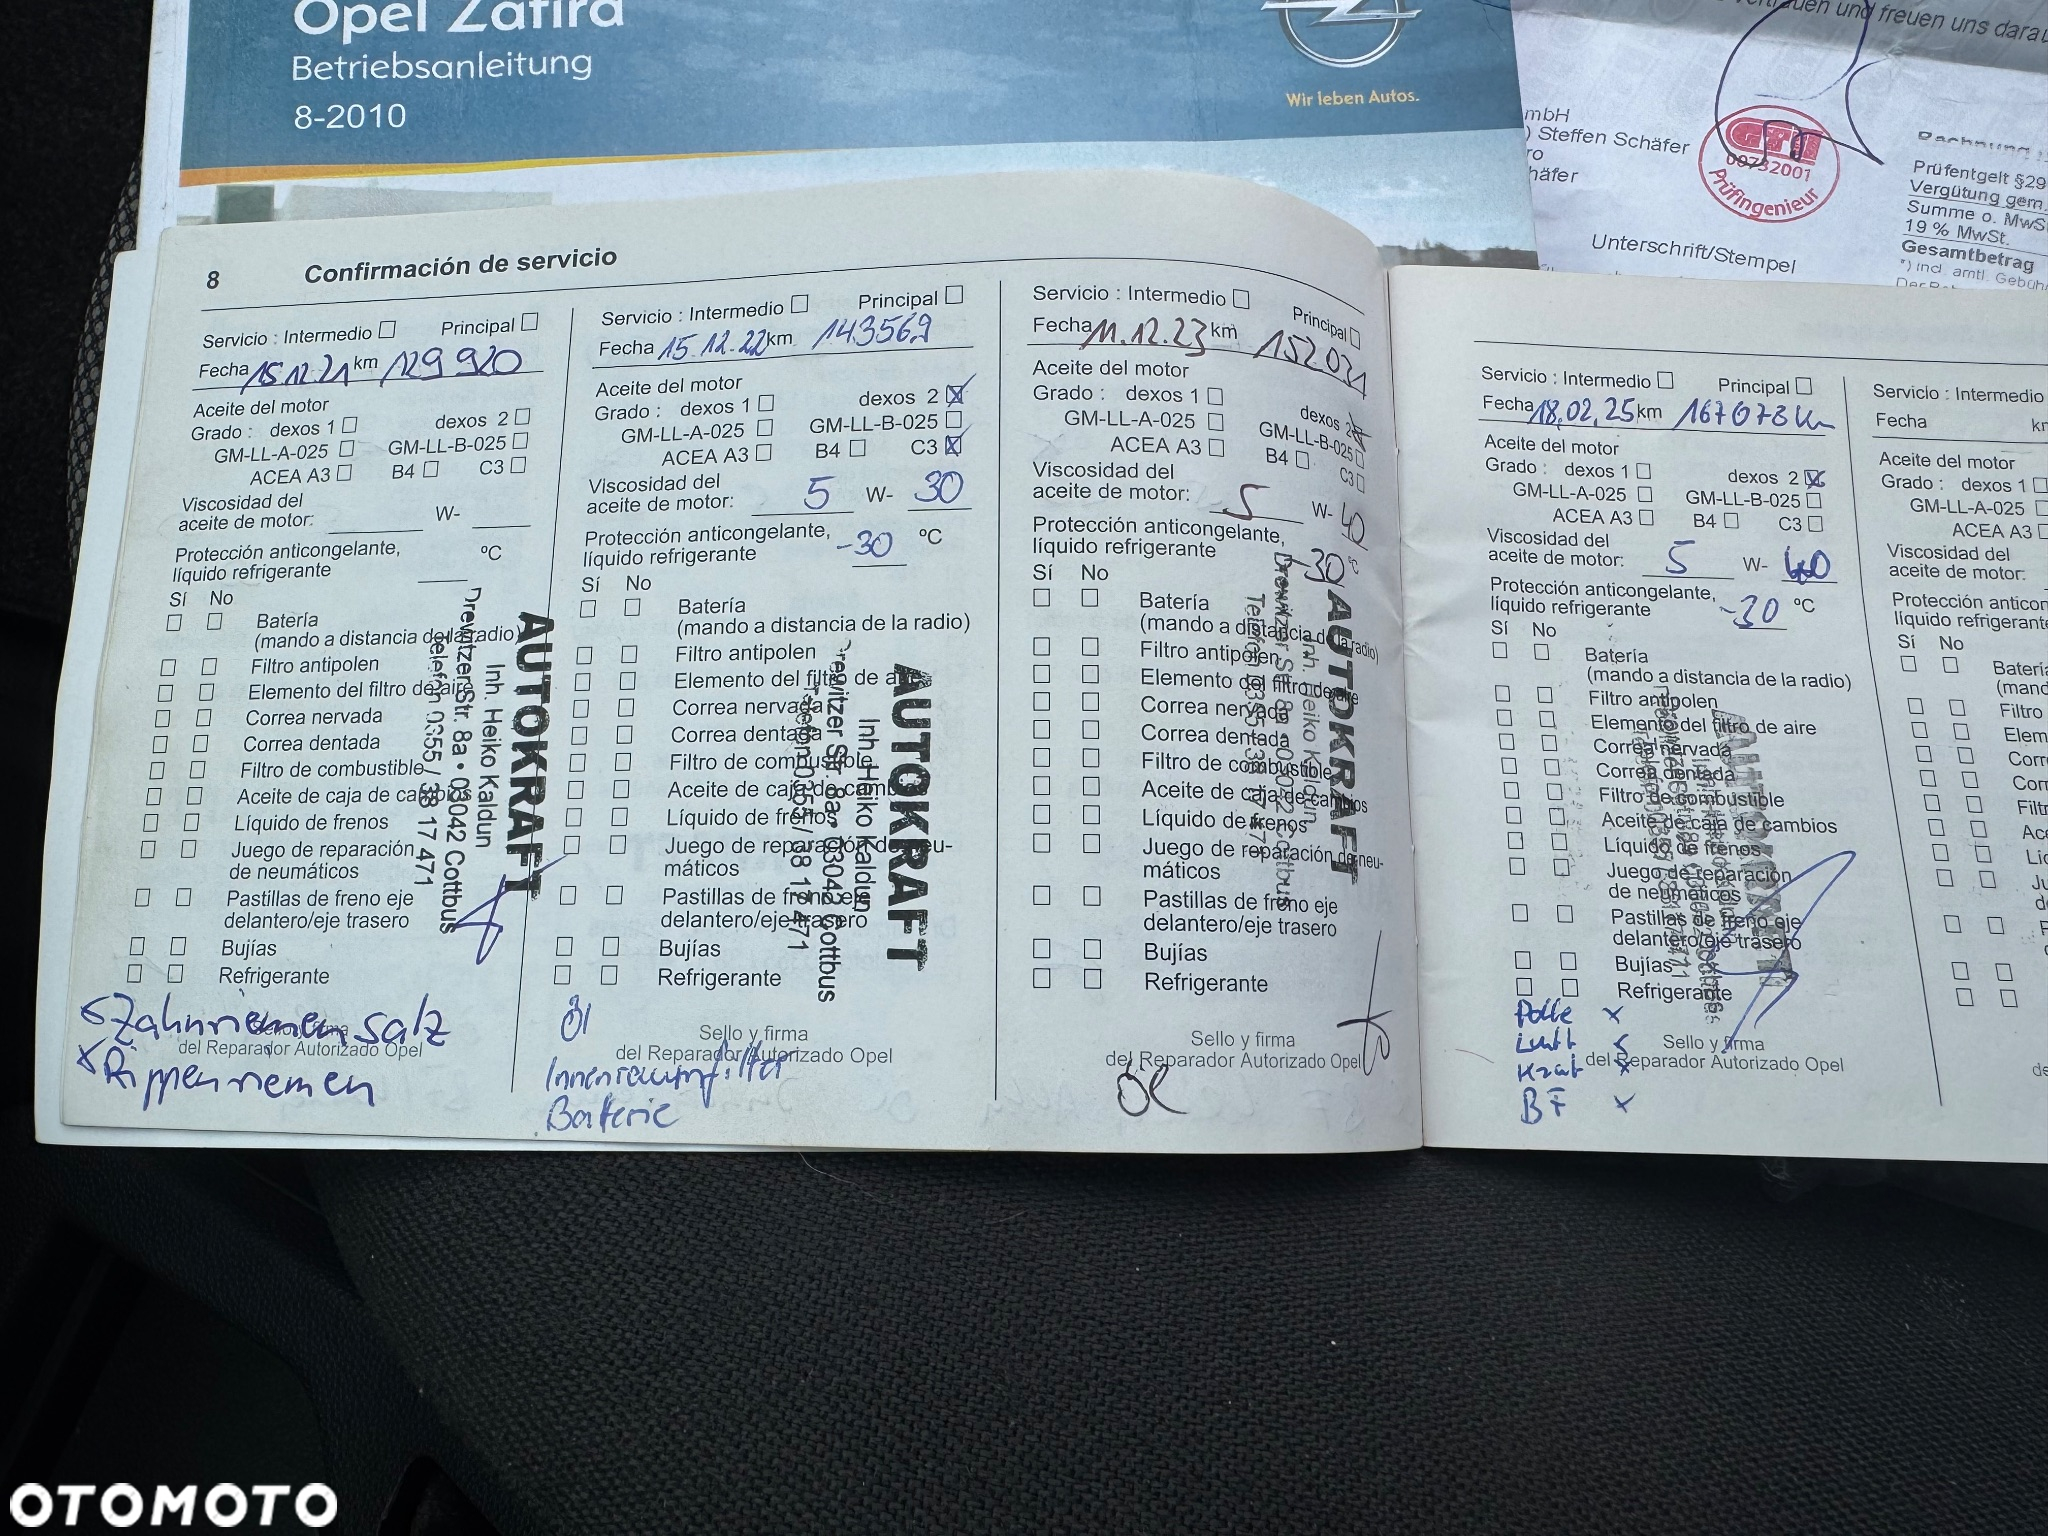 Opel Zafira
Betriebsanleitung
8-2010
Wir leben Autos.
freuen und freuen uns darau
mbH
) Steffen Schäfer
ro
häfer
GTÜ
00732001
Prüfingenieur
Unterschrift/Stempel
Prüfentgelt §29
Vergütung gem.
Summe o. MwSt
19 % MwSt.
Gesamtbetrag
*) incl. amtl. Gebüh
8 Confirmación de servicio
Servicio : Intermedio Principal
Fecha 15.12.21 km 129 920
Aceite del motor
Grado : dexos 1 dexos 2
GM-LL-A-025 GM-LL-B-025
ACEA A3 B4 C3
Viscosidad del
aceite de motor: W-
Protección anticongelante, ºC
líquido refrigerante
Sí No
Batería
(mando a distancia de la radio)
Filtro antipolen
Elemento del filtro de aire
Correa nervada
Correa dentada
Filtro de combustible
Aceite de caja de cambios
Líquido de frenos
Juego de reparación
de neumáticos
Pastillas de freno eje
delantero/eje trasero
Bujías
Refrigerante
AUTOKRAFT
Inh. Heiko Kaldun
Drewitzer Str. 8a • 03042 Cottbus
Telefon 0355 / 38 17 471
Sello y firma
del Reparador Autorizado Opel
Zahnriemen Satz
x Rippenriemen
Servicio : Intermedio Principal
Fecha 15.12.22 km 143569
Aceite del motor
Grado : dexos 1 dexos 2 x
GM-LL-A-025 GM-LL-B-025
ACEA A3 B4 C3 x
Viscosidad del
aceite de motor: 5 W- 30
Protección anticongelante,
líquido refrigerante -30 ºC
Sí No
Batería
(mando a distancia de la radio)
Filtro antipolen
Elemento del filtro de aire
Correa nervada
Correa dentada
Filtro de combustible
Aceite de caja de cambios
Líquido de frenos
Juego de reparación de neu-
máticos
Pastillas de freno eje
delantero/eje trasero
Bujías
Refrigerante
AUTOKRAFT
Inh. Heiko Kaldun
Drewitzer Str. 8a • 03042 Cottbus
Telefon 0355 / 38 17 471
Sello y firma
del Reparador Autorizado Opel
Öl
Innenraumfilter
Batterie
Servicio : Intermedio Principal
Fecha 11.12.23 km 152031
Aceite del motor
Grado : dexos 1 dexos 2 x
GM-LL-A-025 GM-LL-B-025
ACEA A3 B4 C3
Viscosidad del
aceite de motor: 5 W- 40
Protección anticongelante,
líquido refrigerante -30 ºC
Sí No
Batería
(mando a distancia de la radio)
Filtro antipolen
Elemento del filtro de aire
Correa nervada
Correa dentada
Filtro de combustible
Aceite de caja de cambios
Líquido de frenos
Juego de reparación de neu-
máticos
Pastillas de freno eje
delantero/eje trasero
Bujías
Refrigerante
AUTOKRAFT
Inh. Heiko Kaldun
Drewitzer Str. 8a • 03042 Cottbus
Sello y firma
del Reparador Autorizado Opel
Öl
Servicio : Intermedio Principal
Fecha 18.02.25 km 167073 Km
Aceite del motor
Grado : dexos 1 dexos 2 x
GM-LL-A-025 GM-LL-B-025
ACEA A3 B4 C3
Viscosidad del
aceite de motor: 5 W- 40
Protección anticongelante,
líquido refrigerante -30 ºC
Sí No
Batería
(mando a distancia de la radio)
Filtro antipolen
Elemento del filtro de aire
Correa nervada
Correa dentada
Filtro de combustible
Aceite de caja de cambios
Líquido de frenos
Juego de reparación
de neumáticos
Pastillas de freno eje
delantero/eje trasero
Bujías
Refrigerante
AUTOKRAFT
Sello y firma
del Reparador Autorizado Opel
Polle x
Luft x
Kraft x
BF x
Servicio : Intermedio
Fecha km
Aceite del motor
Grado : dexos 1
GM-LL-A-025
ACEA A3
Viscosidad del
aceite de motor:
Protección anticon
líquido refrigerante
Sí No
Batería
(mand
Filtro
Elem
Corr
Cor
Filtr
Ace
OTOMOTO